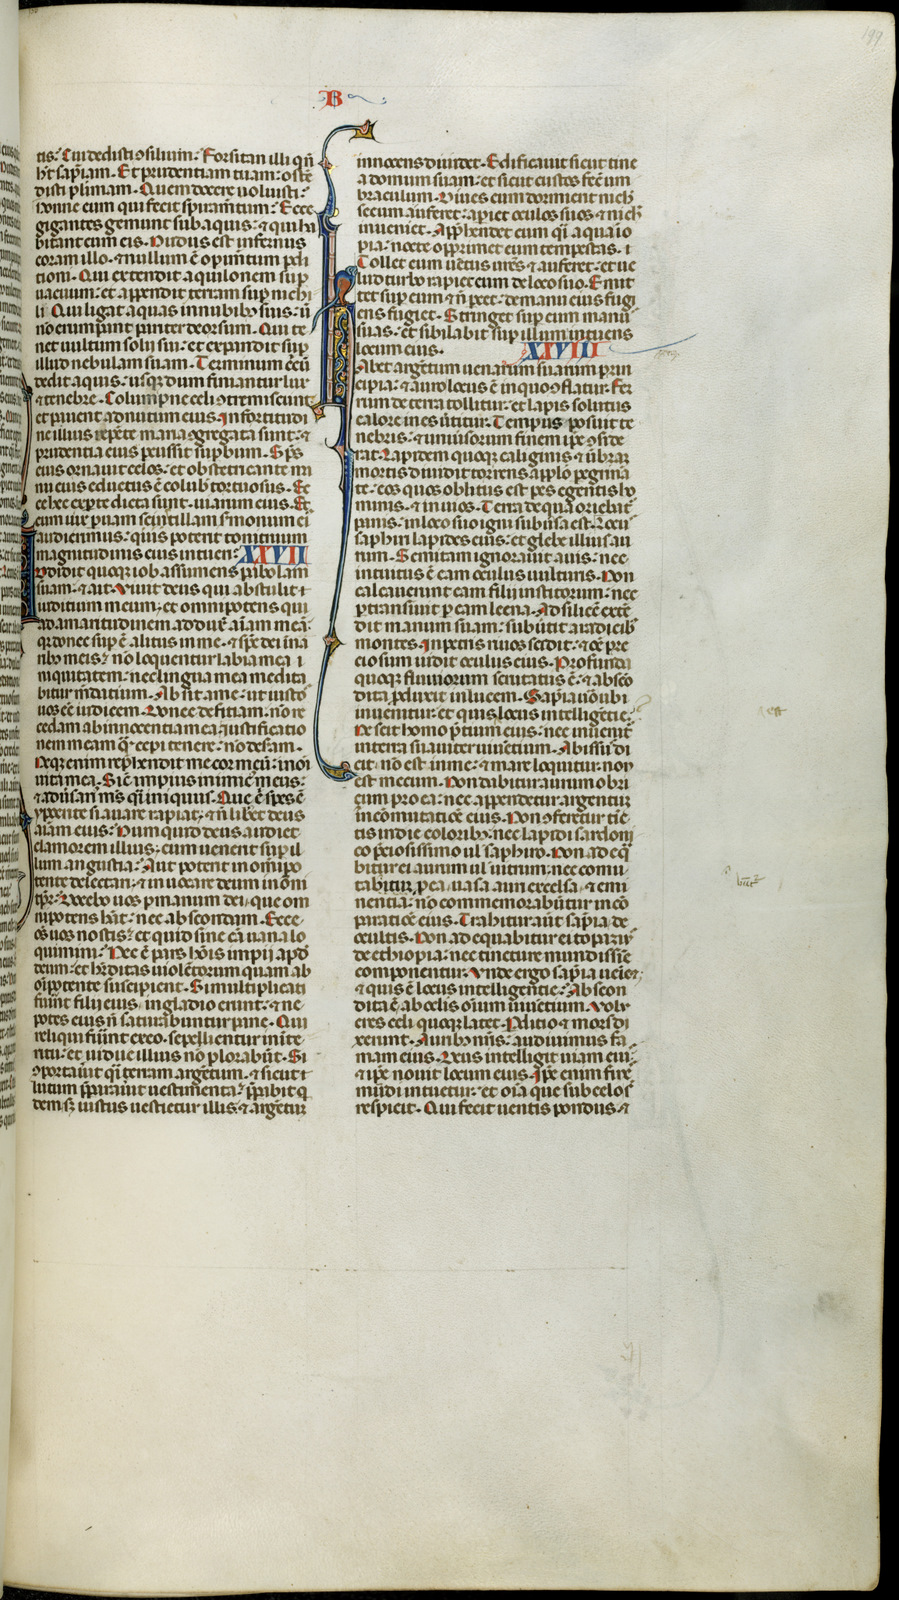 B
199
tis? Cui dedisti ↄsilium? Forsitan illi qñ
hꝫ sapīam. Et prudentiam tuam? oste
disti plimam. Quem docere voluisti?
Nonne eum qui fecit spiramītum? Ecce
gigantes gemunt sub aquis: & qui hꝫ
bitant cum eis. Nudus est infernus
coram illo: & nullum ē opimītum pdi
tioni. Qui extendit aquilonem sup
vacuum: et appendit terram sup nichi
li. Qui ligat aquas in nubibꝫ suis: ū
no erumpant pariter deorsum. Qui te
net uultum solij sui: et expandit sup
illud nebulam suam. Terminum ↄcū
dedit aquis: usqꝫ dum finiantur lux
& tenebre. Columpne celi ↄtremiscunt:
et pauent ad nutum eius. In fortitudi
ne illius repēte maria ↄgregata sunt: &
prudentia eius pcussit supbum. Sp̄s
eius ornauit celos: et obstetricante ma
nu eius eductus ē colubꝫ tortuosus. Ec
ce hec ex pte dicta sunt uiarum eius. Et
cum uix paruam scintillam s̄monum ei
audierimus: quis poterit tonitruum
magnitudinis eius intueri? XXVII
Addidit quoqꝫ iob assumens pabolam
suam: & ait. Viuit deus qui abstulit
iuditium meum: et omnipotens qui
ad amaritudinem adduxͭ aīam meā:
qꝛ donec supē alitus in me: & sp̄c dei in na
ribꝫ meis? nō loquentur labia mea i
niquitatem: nec lingua mea medita
bitur mdatium. Absit a me: ut iustos
uos cē iudicem. Donec defitiam: nō re
cedam ab innocentia mea. Justificatio
nem meam qͣ cepi tenere: nō deseram.
Neqꝫ enim reprhendit me cor meū: in oī
uita mea. Sit ut impius inimicꝰ meus:
& adusari m̄s qͣi iniquus. Que ē spes ē
ypocrite si auare rapiat: & ñ libet deus
aīam eius? Num quid deus audiet
clamorem illius: cum uenerit sup il
lum angustia? Aut poterit in omipo
tente delectari: & inuocare deum in oī
tp̄r? Docebo uos p manum dei: que om
nipotens hꝫ: nec abscondam. Ecce
oēs uos nostis: et quid sine cā uana lo
quimini? Hec ē pars hōis impij apd
deum: et hꝫditas uiolētorum quam ab
oīpotente suscipient. Si multiplicati
fuīnt filij eius: in gladio erunt: & ne
potes eius ñ saturabuntur pane. Qui
reliqui fuīnt ex eo: sepelientur in īte
ritu: et uidue illius nō plorabūt. Si
ↄportauīt qͣi terram argētum: & sicut
lutum p̄parauīt uestimenta: p̄parabit q
dem: sꝫ iustus uestietur illis: & argētū
innocens diuidet. Edificauit sicut tine
a domum suam: et sicut custos fecͭ um
braculum. Diues cum dormierit nich
secum auferet: apiet oculos suos & nich
inueniet. Apphendet eum qͣi aqua io
pia: nocte opprimet eum tempestas.
Tollet eum uētus ur̄ēs & auferet: et ue
lud turbo rapiet eum de loco suo. Emit
tet sup eum & ñ pcet: de manu eius fugi
ens fugiet. Stringet sup eum manus
suas: et sibilabit sup illum intuens
locum eius. XXVIII
Habet argētum uenarum suarum prin
cipia: & auro locus ē in quo ↄflatur. Fer
rum de terra tollitur: et lapis solutus
calore in es ūtitur. Tempus posuit te
nebris: & uniuisorum finem ip̄e ↄside
rat. Lapidem quoqꝫ caliginis & ūbrā
mortis diuidit torrens a pplo pegrina
te: eos quos oblitus est pes egentis ho
minis: & inuios. Terra de qua oriebat
panis: in loco suo igni subūsa est. Locꝰ
saphiri lapides eius: et glebe illius au
rum. Semitam ignorauit auis: nec
intuitus ē eam oculus uulturis. Non
calcauerunt eam filij institorum: nec
ptransiuit p eam leena. Ad silicē exte
dit manum suam: subūtit a radicibꝫ
montes. In petris riuos scidit: & oē pre
ciosum uidit oculus eius. Profunda
quoqꝫ fluuiorum scrutatus ē: & absco
dita pduxit in lucem. Sapīa uō ubi
inuenitur: et quis locus intelligētie?
Nescit homo p̄tium eius: nec inuenīt
in terra suauiter uiuētium. Abissꝰ di
cit: nō est in me: & mare loquitur: non
est mecum. Non dabitur aurum obri
cum pro ea: nec appendetur argentū
in ↄmutatiōe eius. Non ↄferetur tīc
tis indie coloribꝫ: nec lapidi sardoni
co p̄ciosissimo uł saphiro. Non adeqͣ
bitur ei aurum uł uitrum: nec comu
tabitur p ea uasa auri excelsa & emi
nentia: nō commemorabūtur in cō
paratiōe eius. Trahitur aūt sapīa de
occultis. Non adequabitur ei topazꝰ
de ethiopia: nec tincture mundissīe
componentur. Vnde ergo sapīa uenit:
& quis ē locus intelligentie? Abscon
dita ē ab oculis oīum uiuētium. Volu
cres celi quoqꝫ latet. Pditio & mors di
xerunt. Auribꝫ nr̄is: audiuimus fa
mam eius. Deus intelligit uiam eius:
& ip̄e nouit locum eius. Ip̄e enim fines
mūdi intuetur: et oīa que sub celo sūt
respicit. Qui fecit uentis pondus: &